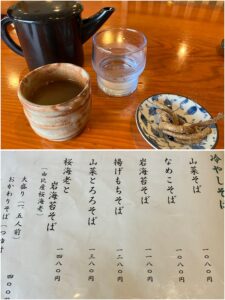 冷やしそば
山菜そば 一〇八〇円
なめこそば 一〇八〇円
岩海苔そば 一一八〇円
揚げもちそば 一二八〇円
山菜とろろそば 一三八〇円
桜海老と
岩海苔そば 一四八〇円
(由比産桜海老)
大盛り(一、五人前)
おかわりそば 四〇〇